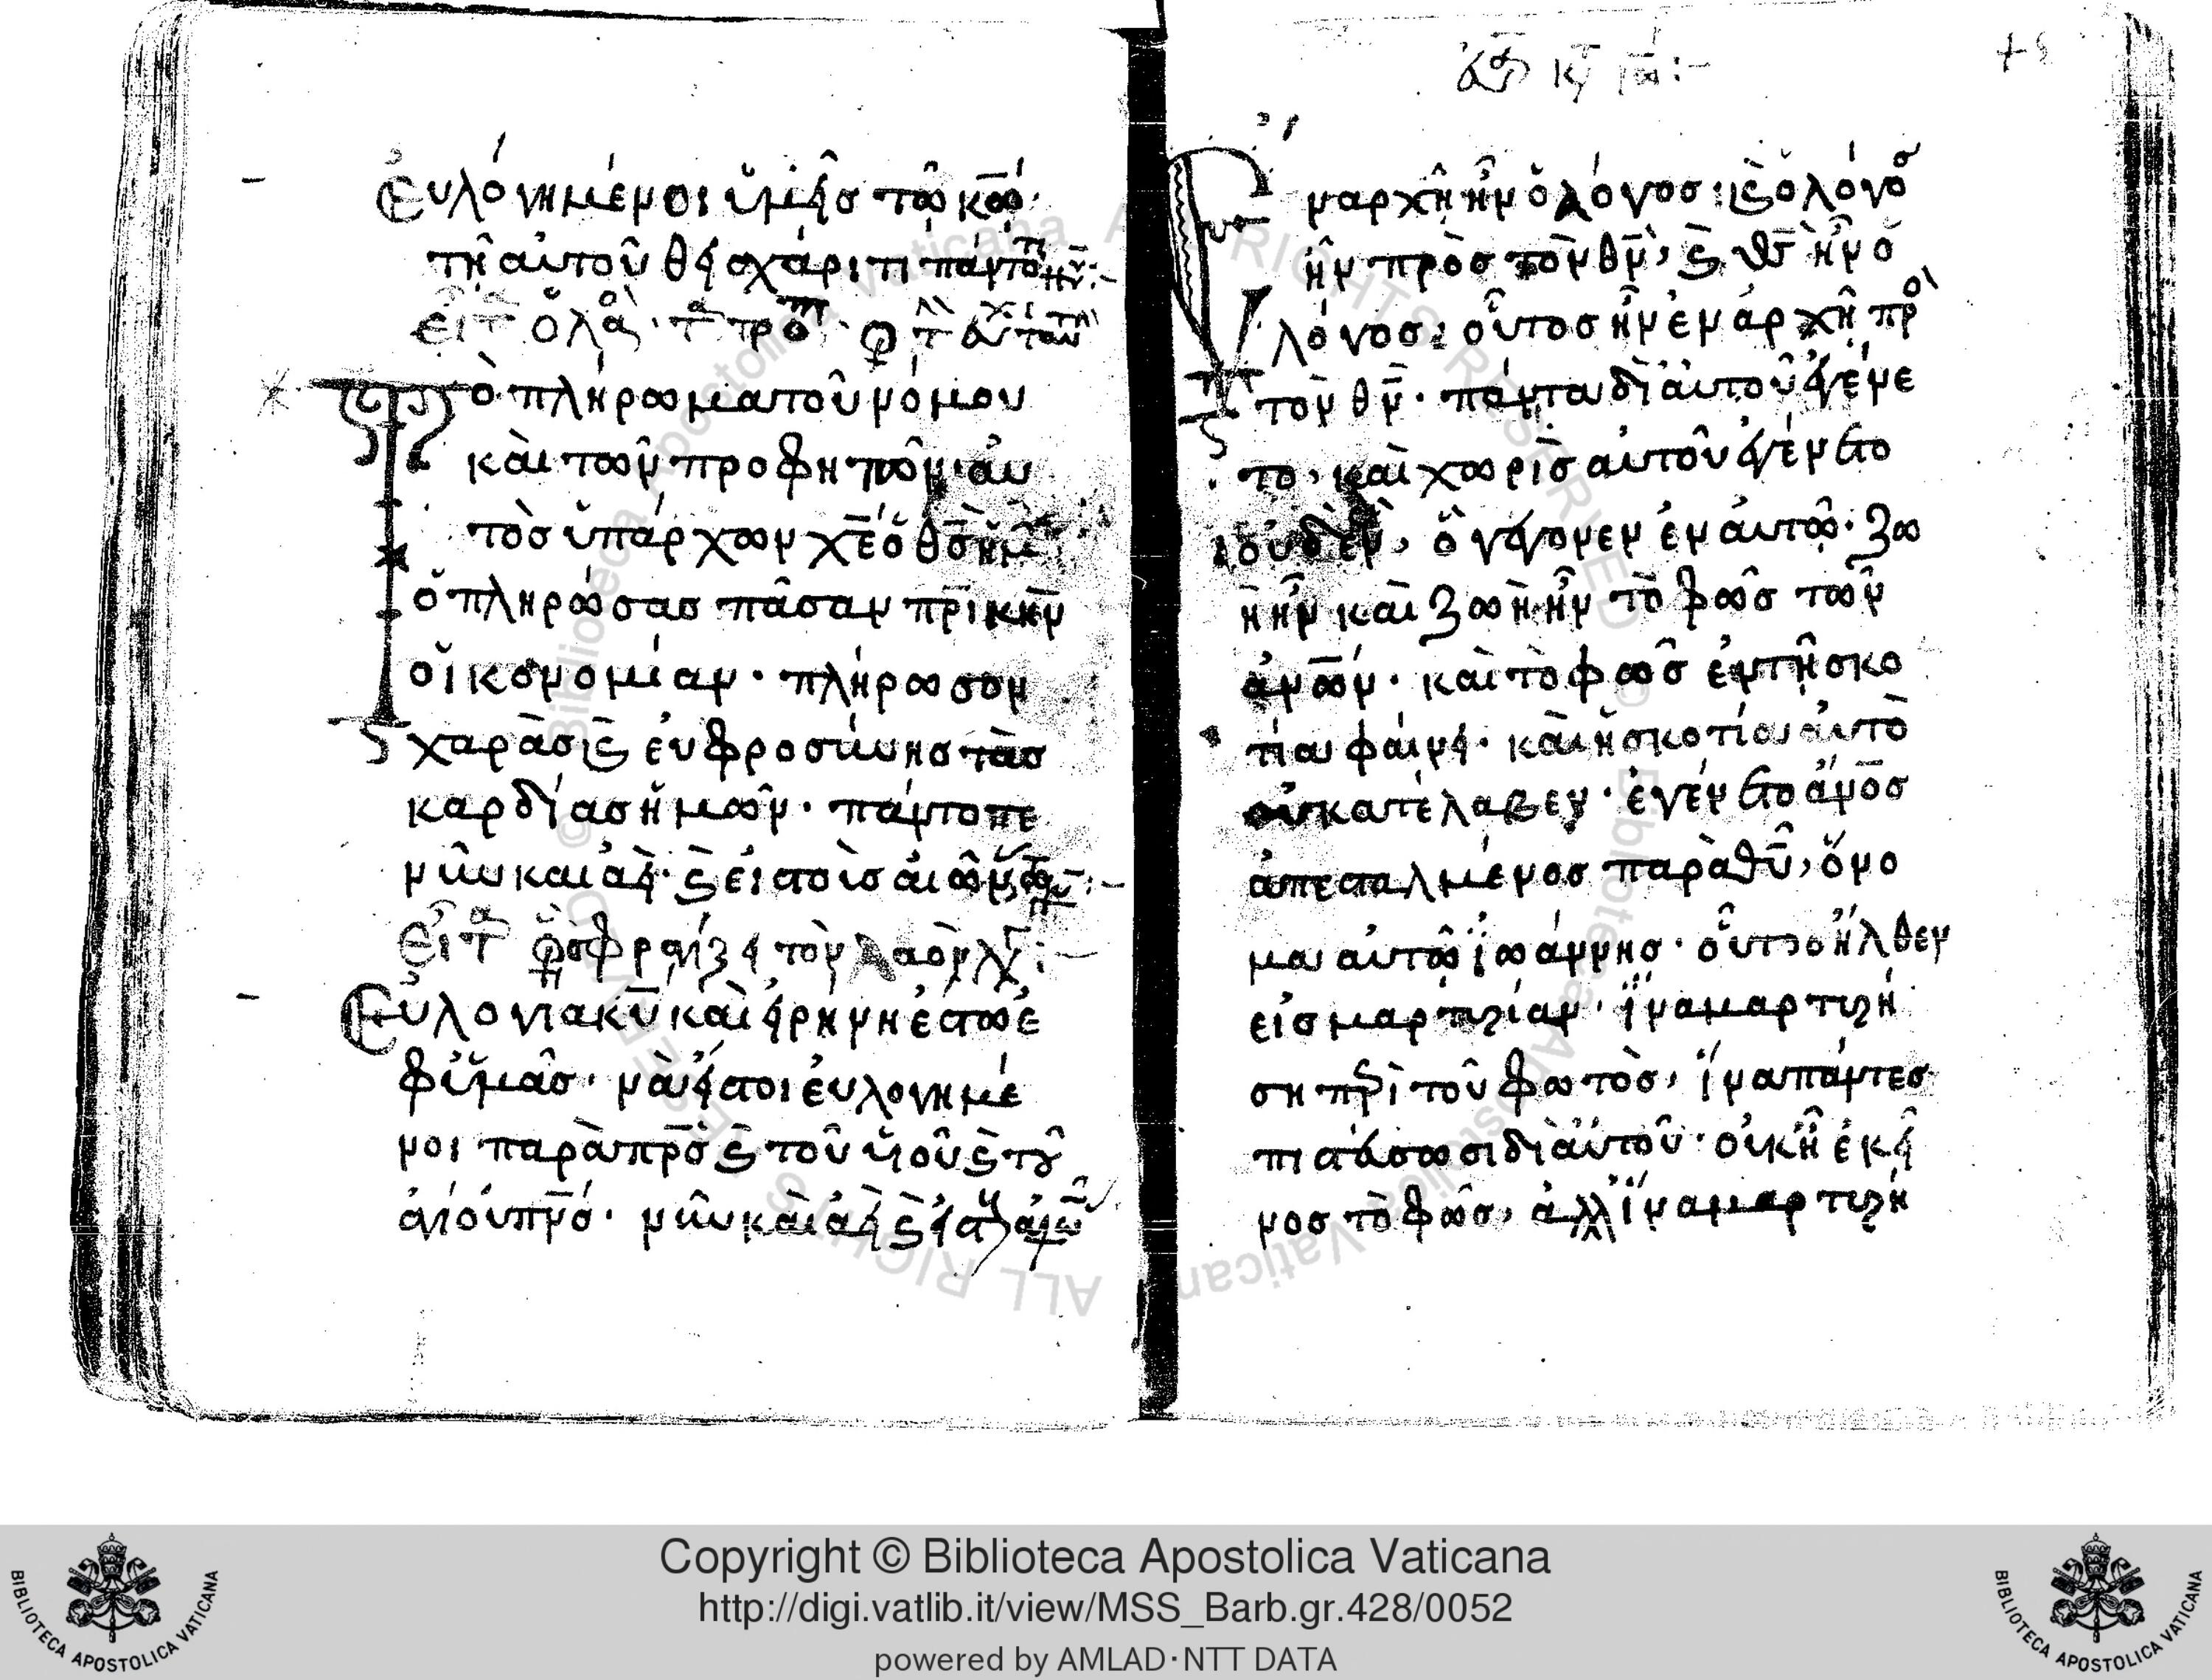 Ἐυλόγημένοι ὑμεῖσ τῶ κῶ·
τῆ αὐτοῦ θεία χάριτι πάντοτε νῦν:–
Τὸ πλήρωμα τοῦ νόμου
καὶ τῶν προφητῶν· αὐ
τὸσ ὑπάρχων χε ὁ θσ ἡμ
ὁ πληρώσασ πᾶσαν πρικὴν
οἰκονομίαν· πλήρωσον
χαρᾶσ κ ἐυφροσύνησ τὰσ
καρδίασ ἡμῶν· πάντοτε
νῦν και ἀεὶ· κ εἰσ τοὺσ αἰῶνασ τῶ:–
Εὐλογία κυ καὶ εἰρήνη ἔστω ἐ
φ ὑμᾶσ· νὰ ἦστοι ἐυλογημέ
νοι παρὰ πρσ κ τοῦ υἱοῦ κ τοῦ
ἁγίου πνσ· νῦν καὶ ἀεὶ κ εἰσ τοὺσ αἰῶ
Ἐν αρχῆ ἦν ὁ λόγοσ: κ ὁ λόγοσ
ἦν πρὸσ τὸν θν, κ θσ ἦν ὁ
λόγοσ: οὗτοσ ἦν ἐν αρχῆ πρὸσ
τὸν θν· πάντα δι αὐτοῦ ἐγένε
το, καὶ χωρὶσ αὐτοῦ ἐγένετο
οὐδὲν, ὃ γέγονεν ἐν αὐτῶ· ζω
ὴ ἦν καὶ ζωὴ ἦν τὸ φῶσ τῶν
ἀνων· καὶ τὸ φῶσ ἐν τῆ σκο
τία φαίνει· καὶ ἡ σκοτία αὐτὸ
οὐ κατέλαβεν· ἐγένετο ἀνοσ
ἀπεσταλμένοσ παρὰ θυ, ὄνο
μα αὐτῶ ἰωάννησ· οὗτοσ ἦλθεν
εἰσ μαρτυρίαν· ἵνα μαρτυρή
ση περὶ τοῦ φωτὸσ, ἵνα πάντεσ
πιστεύσωσι δι αὐτοῦ· οὐκ ἦ ἐκεῖ
νοσ τὸ φῶσ, ἀλλ ἵνα μαρτυρή
Copyright © Biblioteca Apostolica Vaticana
http://digi.vatlib.it/view/MSS_Barb.gr.428/0052
powered by AMLAD·NTT DATA